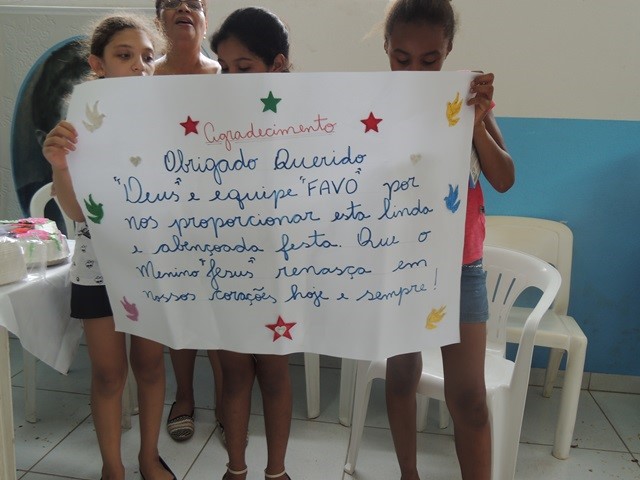 Agradecimento
Obrigado Querido
"Deus" e equipe "FAVO" por
nos proporcionar esta linda
e abençoada festa. Que o
Menino "Jesus" renasça em
nossos corações hoje e sempre!